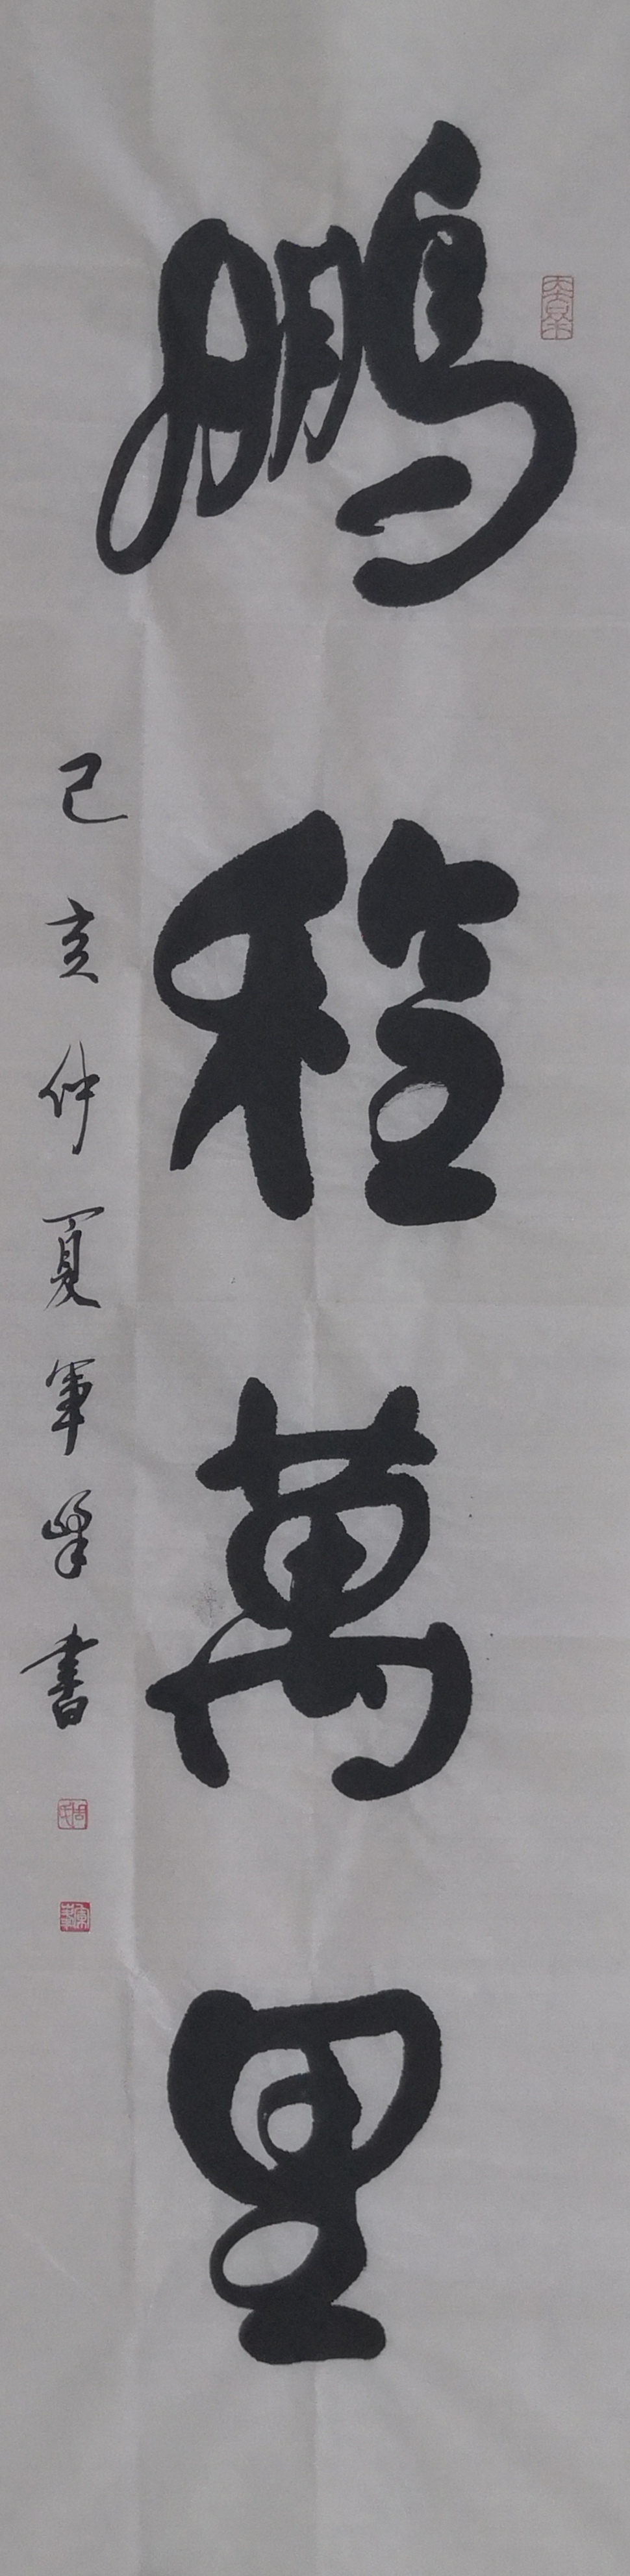 鵬程萬里
己亥仲夏軍峰書